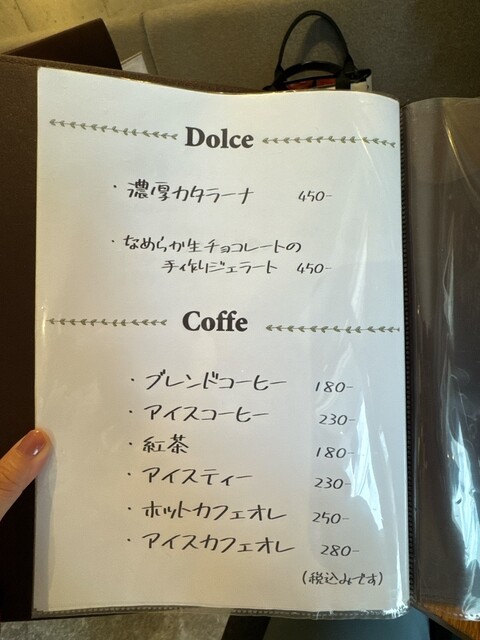 Dolce
・濃厚カタラーナ 450-
・なめらか生チョコレートの
手作りジェラート 450-
Coffe
・ブレンドコーヒー 180-
・アイスコーヒー 230-
・紅茶 180-
・アイスティー 230-
・ホットカフェオレ 250-
・アイスカフェオレ 280-
(税込みです)